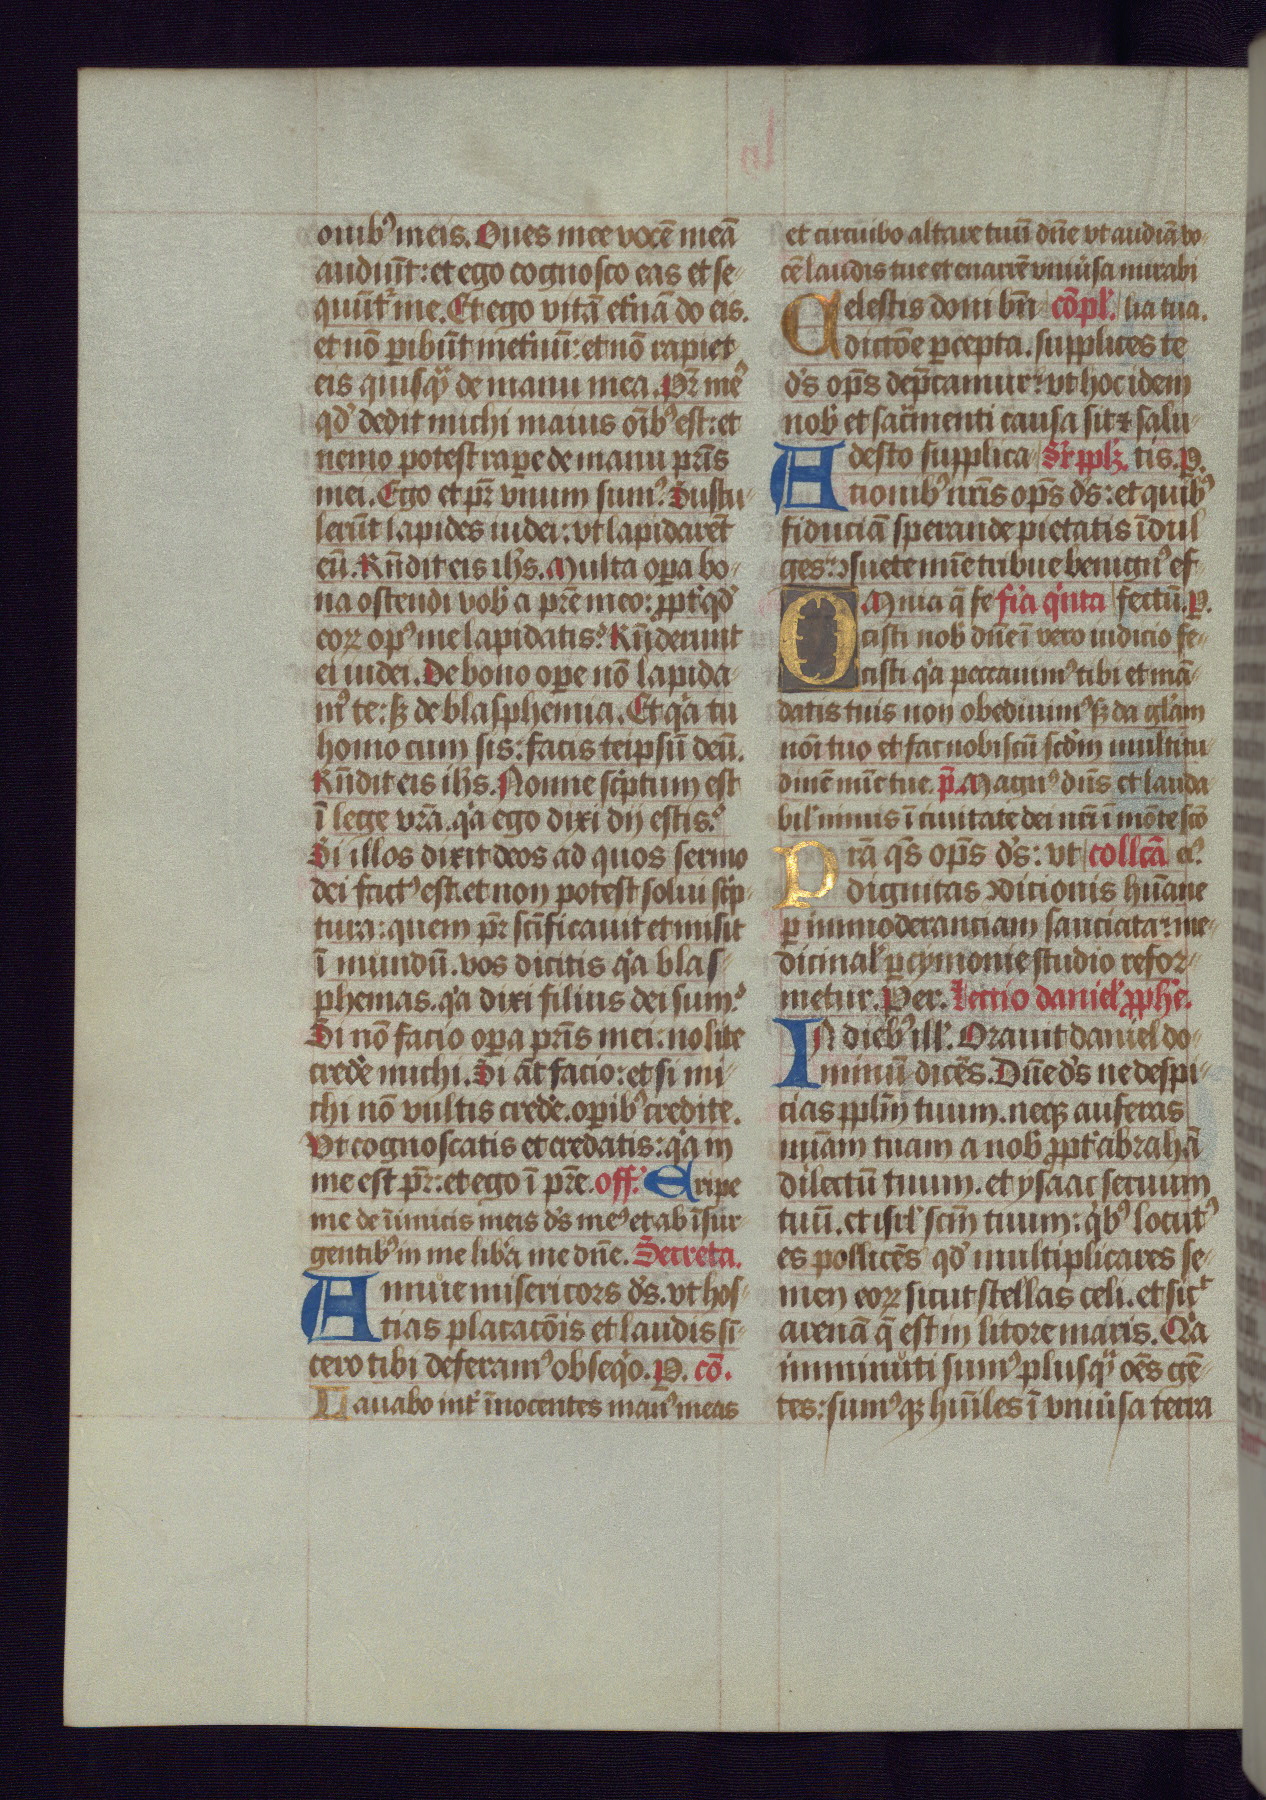 ouib⁹ meis. Oues mee vocē meā
audiūt: et ego cognosco eas et se-
quūt᷑ me. Et ego vitā et͛nā do eis.
et nō ꝑibūt inet͛nū: et nō rapiet
eis quisqꝫ de manu mea. Pr̄ me⁹
qd̓ dedit michi maius oīb⁹ est: et
nemo potest raꝑe de manu pr̄is
mei. Ego et pr̄ vnum sum⁹. Sustu-
lerūt lapides iudei: vt lapidarēt
eū. Rn̄dit eis ih̄s. Multa oꝑa bo-
na ostendi vob̓ a pr̄e meo: ꝓpt͛ qd̓
eoꝝ op⁹ me lapidatis? Rn̄derunt
ei iudei. De bono oꝑe nō lapida-
m⁹ te: sꝫ de blasphemia. Et q̓a tu
homo cum sis: facis teipsū deū.
Rn̄dit eis ih̄s. Nonne sc̓ptum est
ī lege vr̄a. q̓a ego dixi dij estis?
Si illos dixit deos ad quos sermo
dei fact⁹ est. et non potest solui sc̓p-
tura: quem pr̄ sc̄ificauit et misit
ī mundū. vos dicitis q̓a blas-
phemas. q̓a dixi filius dei sum?
Si nō facio oꝑa pr̄is mei: nolite
cred̓e michi. Si āt facio: et si mi-
chi nō vultis cred̓e. oꝑib⁹ credite.
Vt cognoscatis et credatis: q̓a in
me est pr̄: et ego ī pr̄e. off̓. Eripe
me de inimicis meis d̓s me⁹ et ab īsur-
gentib⁹ in me lib͛a me dn̄e. Secreta.
Annue misericors d̓s. vt hos-
tias placacōis et laudis sī-
cero tibi deferam⁹ obseq̓o. P. cō.
Lauabo int͛ īnocentes man⁹ meas
et circuibo altare tuū dn̄e vt audiā vo-
cē laudis tue et enarrē vniu͛sa mirabi
Celestis doni bn̄ cōpl̓. lia tua.
dictōe ꝑcepta. supplices te
d̓s op̄s dep̄camur: vt hoc idem
nob̓ et sac͛menti causa sit ⁊ salu-
Adesto supplica Sr̄ pplꝫ. tis. P.
tionib⁹ nr̄is op̄s d̓s: et quib⁹
fiduciā sperande pietatis īdul
ges: ꝯsuete mīe tribue benign⁹ ef-
OMnia q̄ fe fr̓a q̓nta fectū. P.
cisti nob̓ dn̄e ī vero iudicio fe-
cisti q̓a peccauim⁹ tibi et mā-
datis tuis non obediuim⁹ sꝫ da gl̓am
noī tuo et fac nobiscū scd̓m multitu-
dinē mīe tue. p̄. Magn⁹ dn̄s et lauda
bil̓ nimis ī ciuitate dei nr̄i ī mōte sc̄o
Pr̄a q̄s op̄s d̓s: vt collcā ei⁹
dignitas ꝯdicionis hūane
ꝑ immoderanciam sauciata: me-
dicinal̓ ꝑcymonie studio refor-
metur. Per. Lectio daniel̓ ꝓphē.
IN dieb⁹ ill̓. Orauit daniel do-
minū dicēs. Dn̄e d̓s ne despi-
cias ppl̄m tuum. neqꝫ auferas
mīam tuam a nob̓ ꝓpt͛ abrahā
dilectū tuum. et ysaac seruum
tuū. et isrl̓ sc̄m tuum: q̓b⁹ locut⁹
es pollicēs qd̓ multiplicares se-
men eoꝝ sicut stellas celi. et sic̓t
arenā q̄ est in litore maris. Q̓a
imminuti sum⁹ plusqꝫ oēs gē-
tes: sum⁹qꝫ hūiles ī vniu͛sa terra